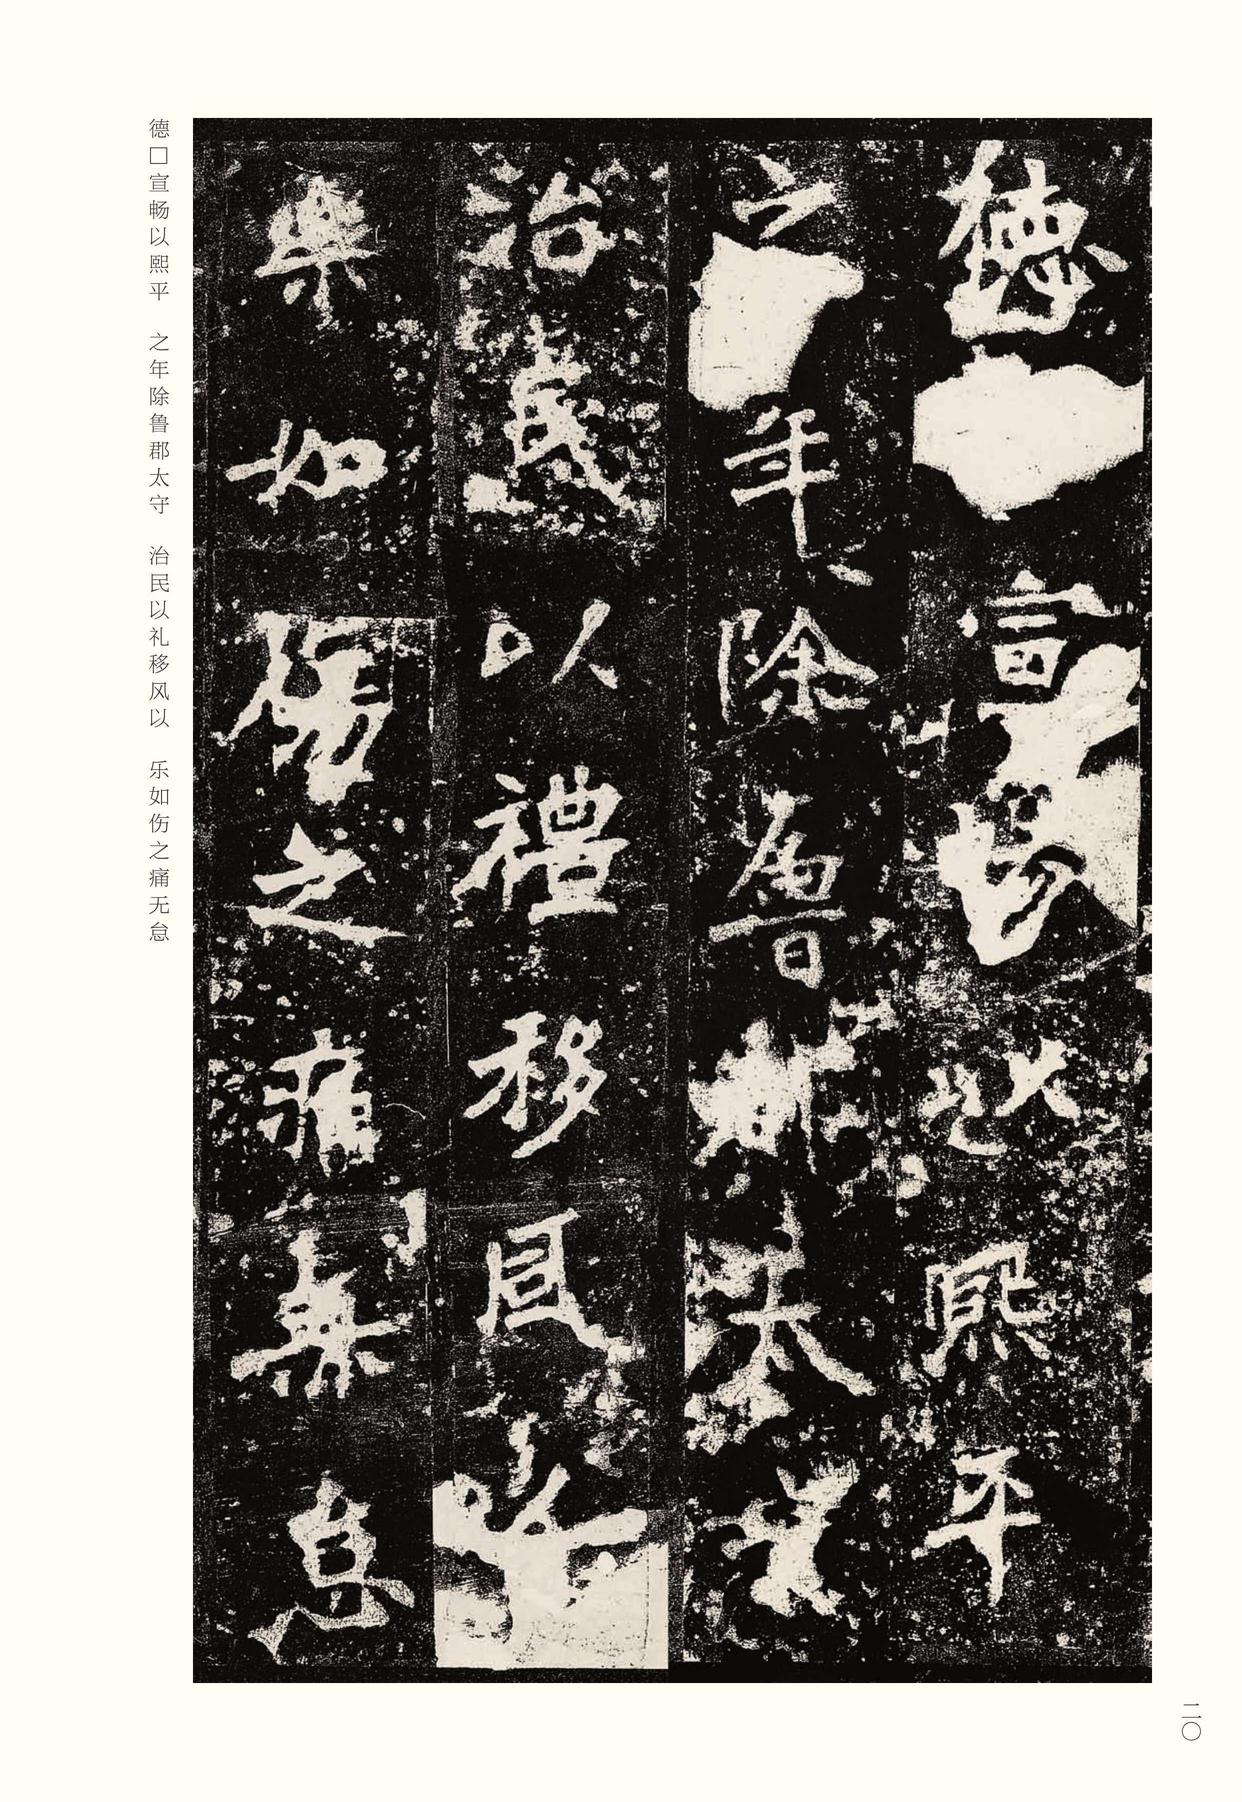 德宣暢以熙平
之年除魯郡太守
治民以禮移風
樂如傷之痛無怠
德□宣畅以熙平　之年除鲁郡太守　治民以礼移风以　乐如伤之痛无怠
二〇